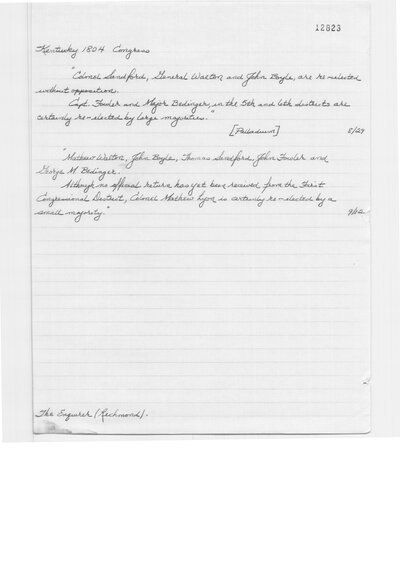 12823
Kentucky 1804 Congress
"Colonel Sandford, General Walton and John Boyle, are re-elected
without opposition.
Capt. Fowler and Major Bedinger, in the 5th and 6th districts are
certainly re-elected by large majorities."
[Palladium] 8/29
"Mathew Walton, John Boyle, Thomas Sandford, John Fowler and
George M. Bedinger.
Although no official return has yet been received from the First
Congressional District, Colonel Mathew Lyon is certainly re-elected by a
small majority." 9/12
The Enquirer (Richmond).